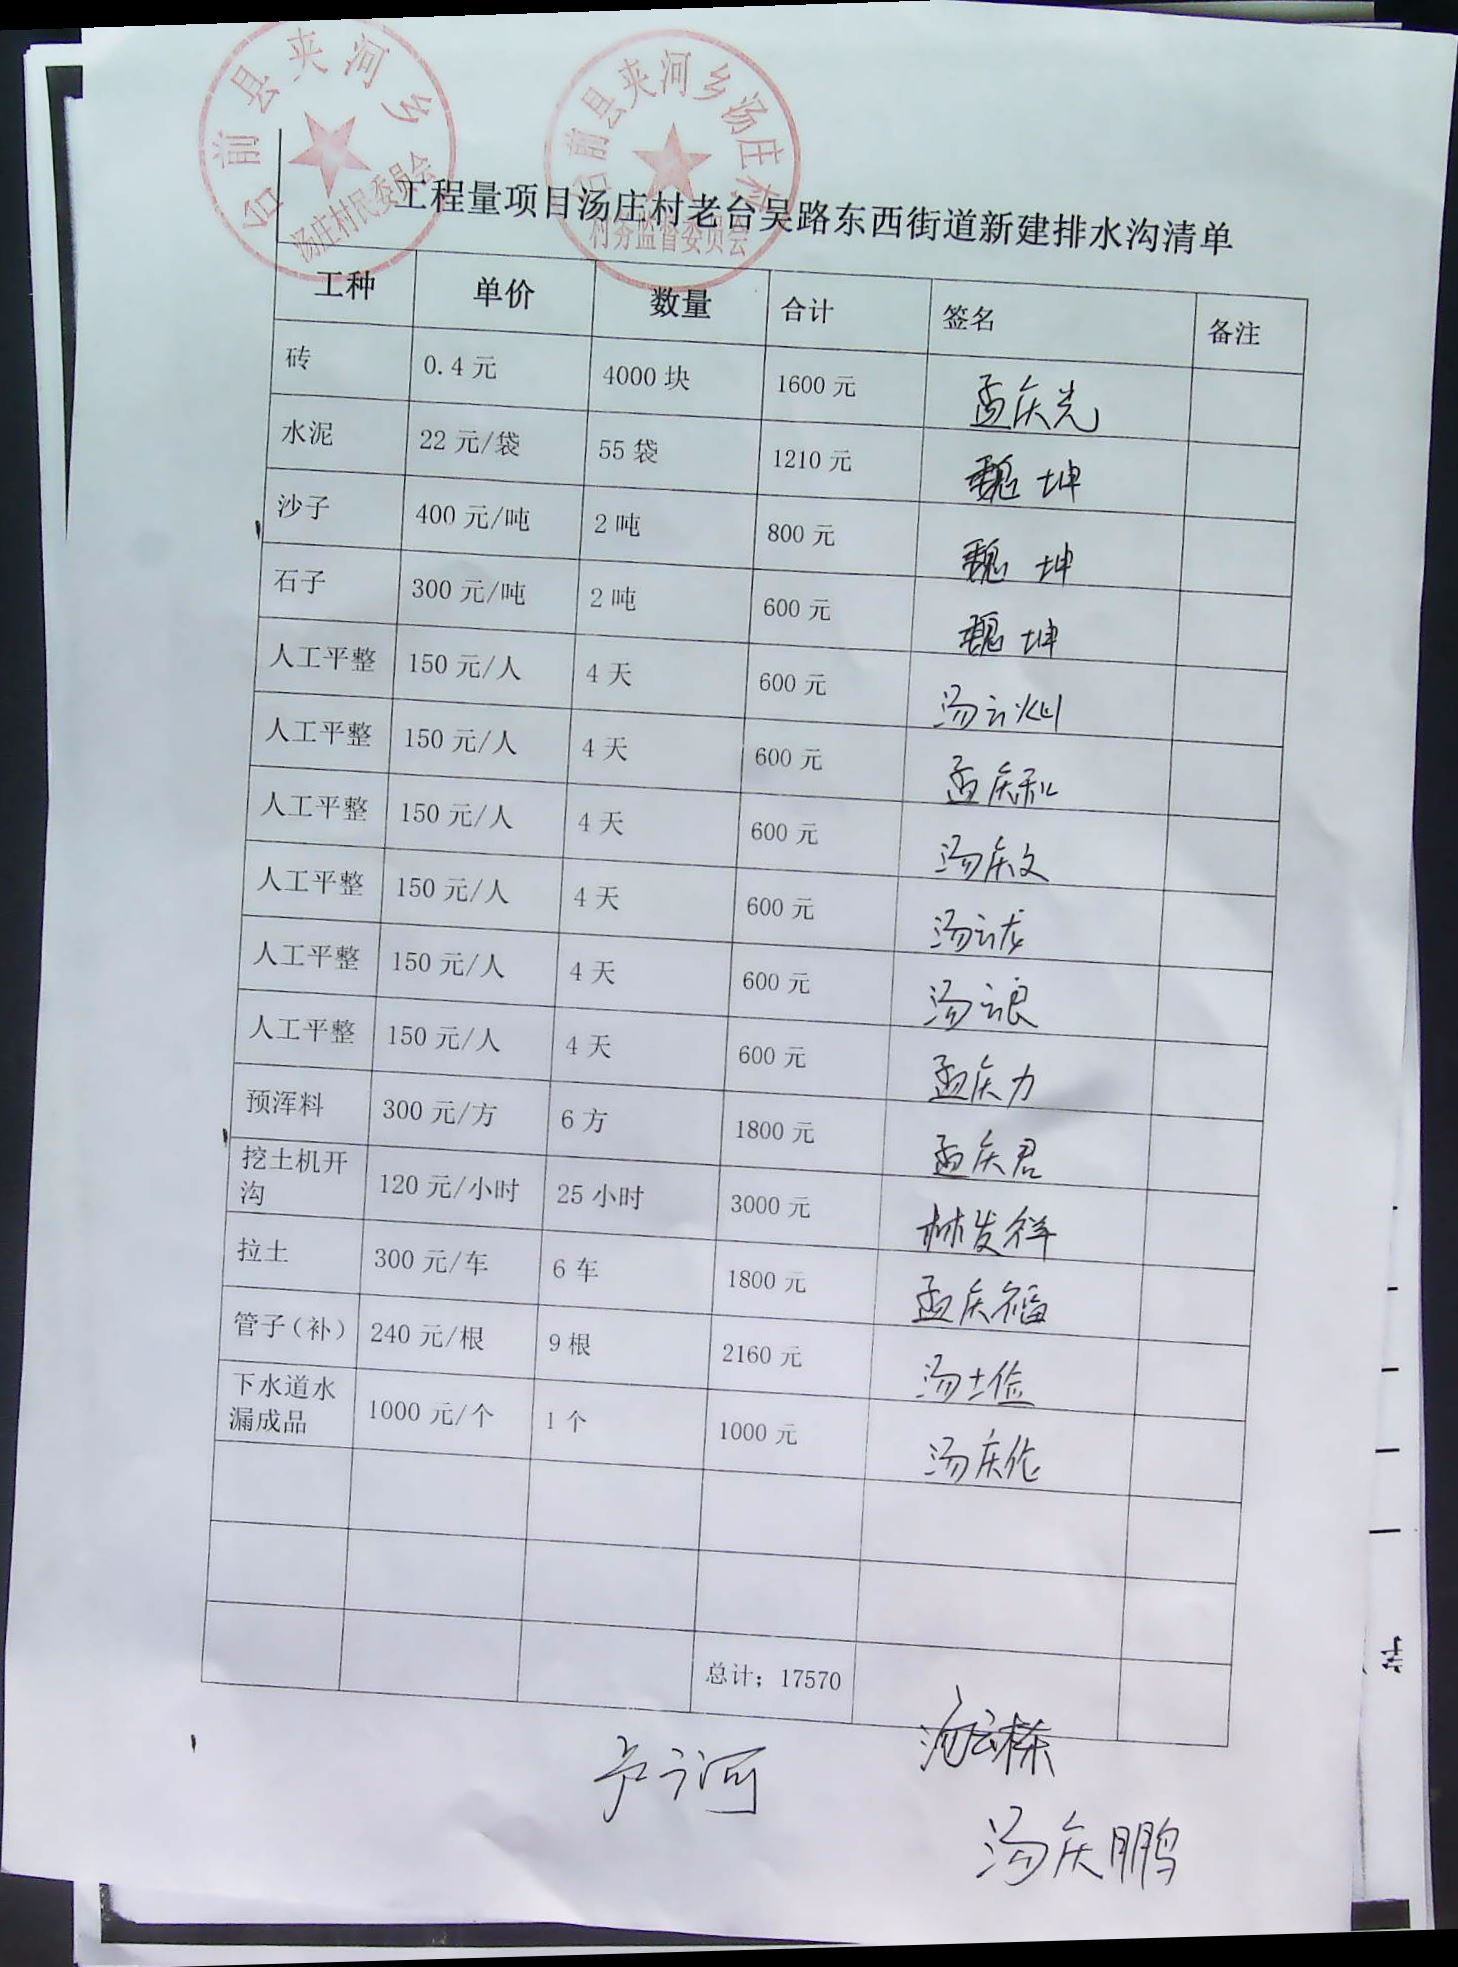 台前县夹河乡
汤庄村民委员会
台前县夹河乡汤庄村
村务监督委员会
工程量项目汤庄村老台吴路东西街道新建排水沟清单
工种 单价 数量 合计 签名 备注
砖 0.4元 4000块 1600元 孟庆光
水泥 22元/袋 55袋 1210元 魏坤
沙子 400元/吨 2吨 800元 魏坤
石子 300元/吨 2吨 600元 魏坤
人工平整 150元/人 4天 600元 汤云灿
人工平整 150元/人 4天 600元 孟庆和
人工平整 150元/人 4天 600元 汤庆文
人工平整 150元/人 4天 600元 汤云龙
人工平整 150元/人 4天 600元 汤云良
人工平整 150元/人 4天 600元 孟庆力
预浑料 300元/方 6方 1800元 孟庆君
挖土机开
沟 120元/小时 25小时 3000元 林发祥
拉土 300元/车 6车 1800元 孟庆福
管子（补） 240元/根 9根 2160元 汤士俭
下水道水
漏成品 1000元/个 1个 1000元 汤庆伦
总计；17570
汤庆鹏